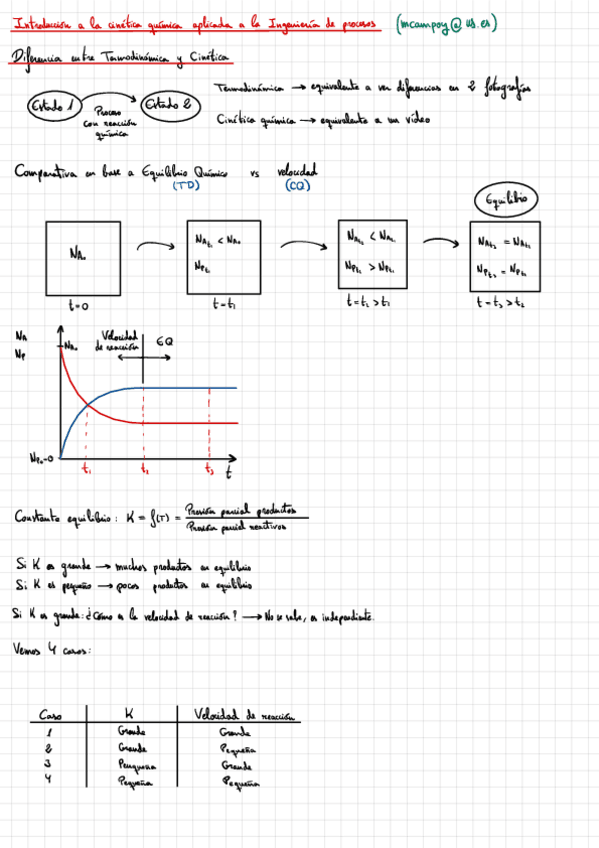 Introducción a la cinética química aplicada a la Ingeniería de procesos (mcampoy@us.es)
Diferencia entre Termodinámica y Cinética
Estado 1 Proceso con reacción química Estado 2
Termodinámica → equivalente a ver diferencias en 2 fotografías
Cinética química → equivalente a un vídeo
Comparativa en base a Equilibrio Químico vs velocidad
(TD) (CQ)
Equilibrio
NA₀
NAt₁ < NA₀
NPt₁
NAt₂ < NAt₁
NPt₂ > NPt₁
NAt₃ = NAt₂
NPt₃ = NPt₂
t=0 t=t₁ t=t₂>t₁ t=t₃>t₂
NA
NP
NA₀
Velocidad de reacción
EQ
NP₀=0
t₁ t₂ t₃ t
Constante equilibrio: K = f(T) = Presión parcial productos / Presión parcial reactivos
Si K es grande → muchos productos en equilibrio
Si K es pequeño → pocos productos en equilibrio
Si K es grande: ¿Cómo es la velocidad de reacción? → No se sabe, es independiente.
Vemos 4 casos:
Caso K Velocidad de reacción
1 Grande Grande
2 Grande Pequeña
3 Pequeña Grande
4 Pequeña Pequeña